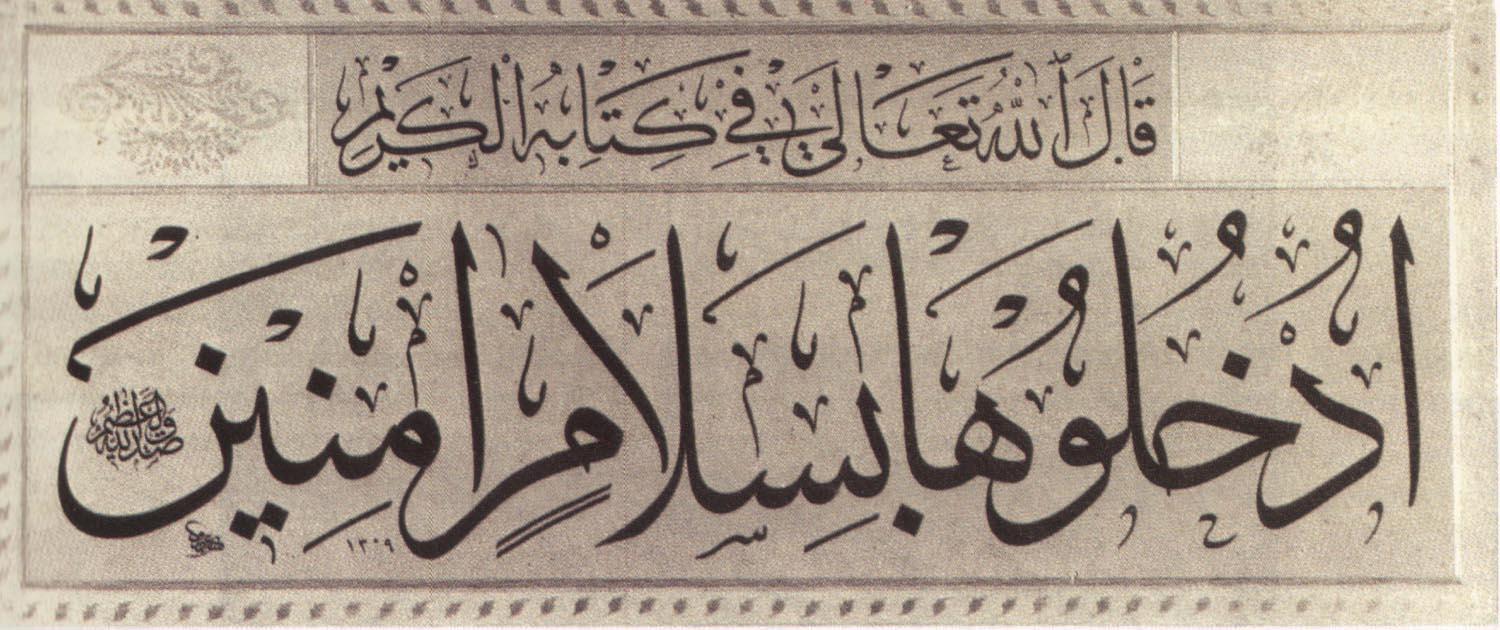 قَالَ ٱللهُ تَعَالَى فِي كِتَابِهِ الْكَرِيمِ
اُدْخُلُوهَا بِسَلَامٍ اٰمِنِينَ
صدق الله العظيم
١٣٠٩